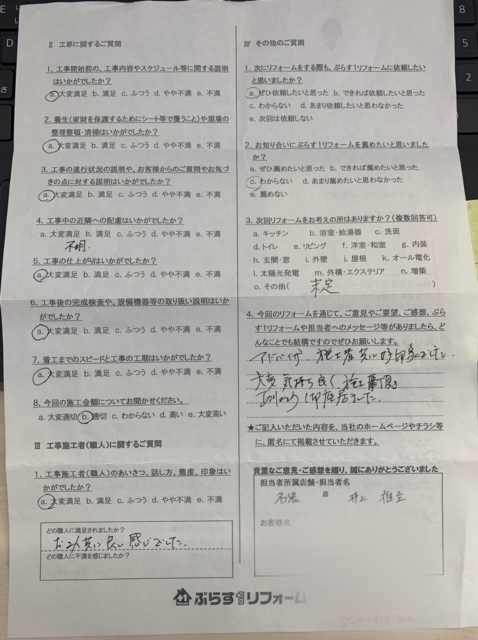 II 工事に関するご質問
1. 工事開始前の、工事内容やスケジュール等に関する説明
はいかがでしたか?
a. 大変満足 b. 満足 c. ふつう d. やや不満 e. 不満
2. 養生(家財を保護するためにシート等で覆うこと)や現場の
整理整頓・清掃はいかがでしたか?
a. 大変満足 b. 満足 c. ふつう d. やや不満 e. 不満
3. 工事の進行状況の説明や、お客様からのご質問やお気づ
きの点に対する説明はいかがでしたか?
a. 大変満足 b. 満足 c. ふつう d. やや不満 e. 不満
4. 工事中の近隣への配慮はいかがでしたか?
a. 大変満足 b. 満足 c. ふつう d. やや不満 e. 不満
不明.
5. 工事の仕上がりはいかがでしたか?
a. 大変満足 b. 満足 c. ふつう d. やや不満 e. 不満
6. 工事後の完成検査や、設備機器等の取り扱い説明はいか
がでしたか?
a. 大変満足 b. 満足 c. ふつう d. やや不満 e. 不満
7. 着工までのスピードと工事の工期はいかがでしたか?
a. 大変満足 b. 満足 c. ふつう d. やや不満 e. 不満
8. 今回の施工金額についてお聞かせください。
a. 大変適切 b. 適切 c. わからない d. 高い e. 大変高い
III 工事施工者(職人)に関するご質問
1. 工事施工者(職人)のあいさつ、話し方、態度、印象はいか
がでしたか?
a. 大変満足 b. 満足 c. ふつう d. やや不満 e. 不満
どの職人に満足されましたか?
お2人共に良い感じでした.
どの職人に不満を感じましたか?
IV その他のご質問
1. 次にリフォームをする際も、ぷらす1リフォームに依頼したい
と思いましたか?
a. ぜひ依頼したいと思った b. できれば依頼したいと思った
c. わからない d. あまり依頼したいと思わなかった
e. 次回は依頼しない
2. お知り合いにぷらす1リフォームを薦めたいと思いました
か?
a. ぜひ薦めたいと思った b. できれば薦めたいと思った
c. わからない d. あまり薦めたいと思わなかった
e. 薦めない
3. 次回リフォームをお考えの所はありますか?(複数回答可)
a. キッチン b. 浴室・給湯器 c. 洗面
d. トイレ e. リビング f. 洋室・和室 g. 内装
h. 玄関・窓 i. 外壁 j. 屋根 k. オール電化
l. 太陽光発電 m. 外構・エクステリア n. 増築
o. その他( 未定 )
4. 今回のリフォームを通じて、ご意見やご要望、ご感想、ぷら
す1リフォームや担当者へのメッセージ等がありましたら、ど
んなことでも結構ですのでぜひお願いします。
アドバイザー 施工業共に好印象でした.
大変気持ち良く施工
★ご記入いただいた内容を、当社のホームページやチラシ等
に、匿名にて掲載させていただきます。
貴重なご意見・ご感想を賜り、誠にありがとうございました
担当者所属店舗・担当者名
名張 店 井上
お客様名
ぷらす1リフォーム